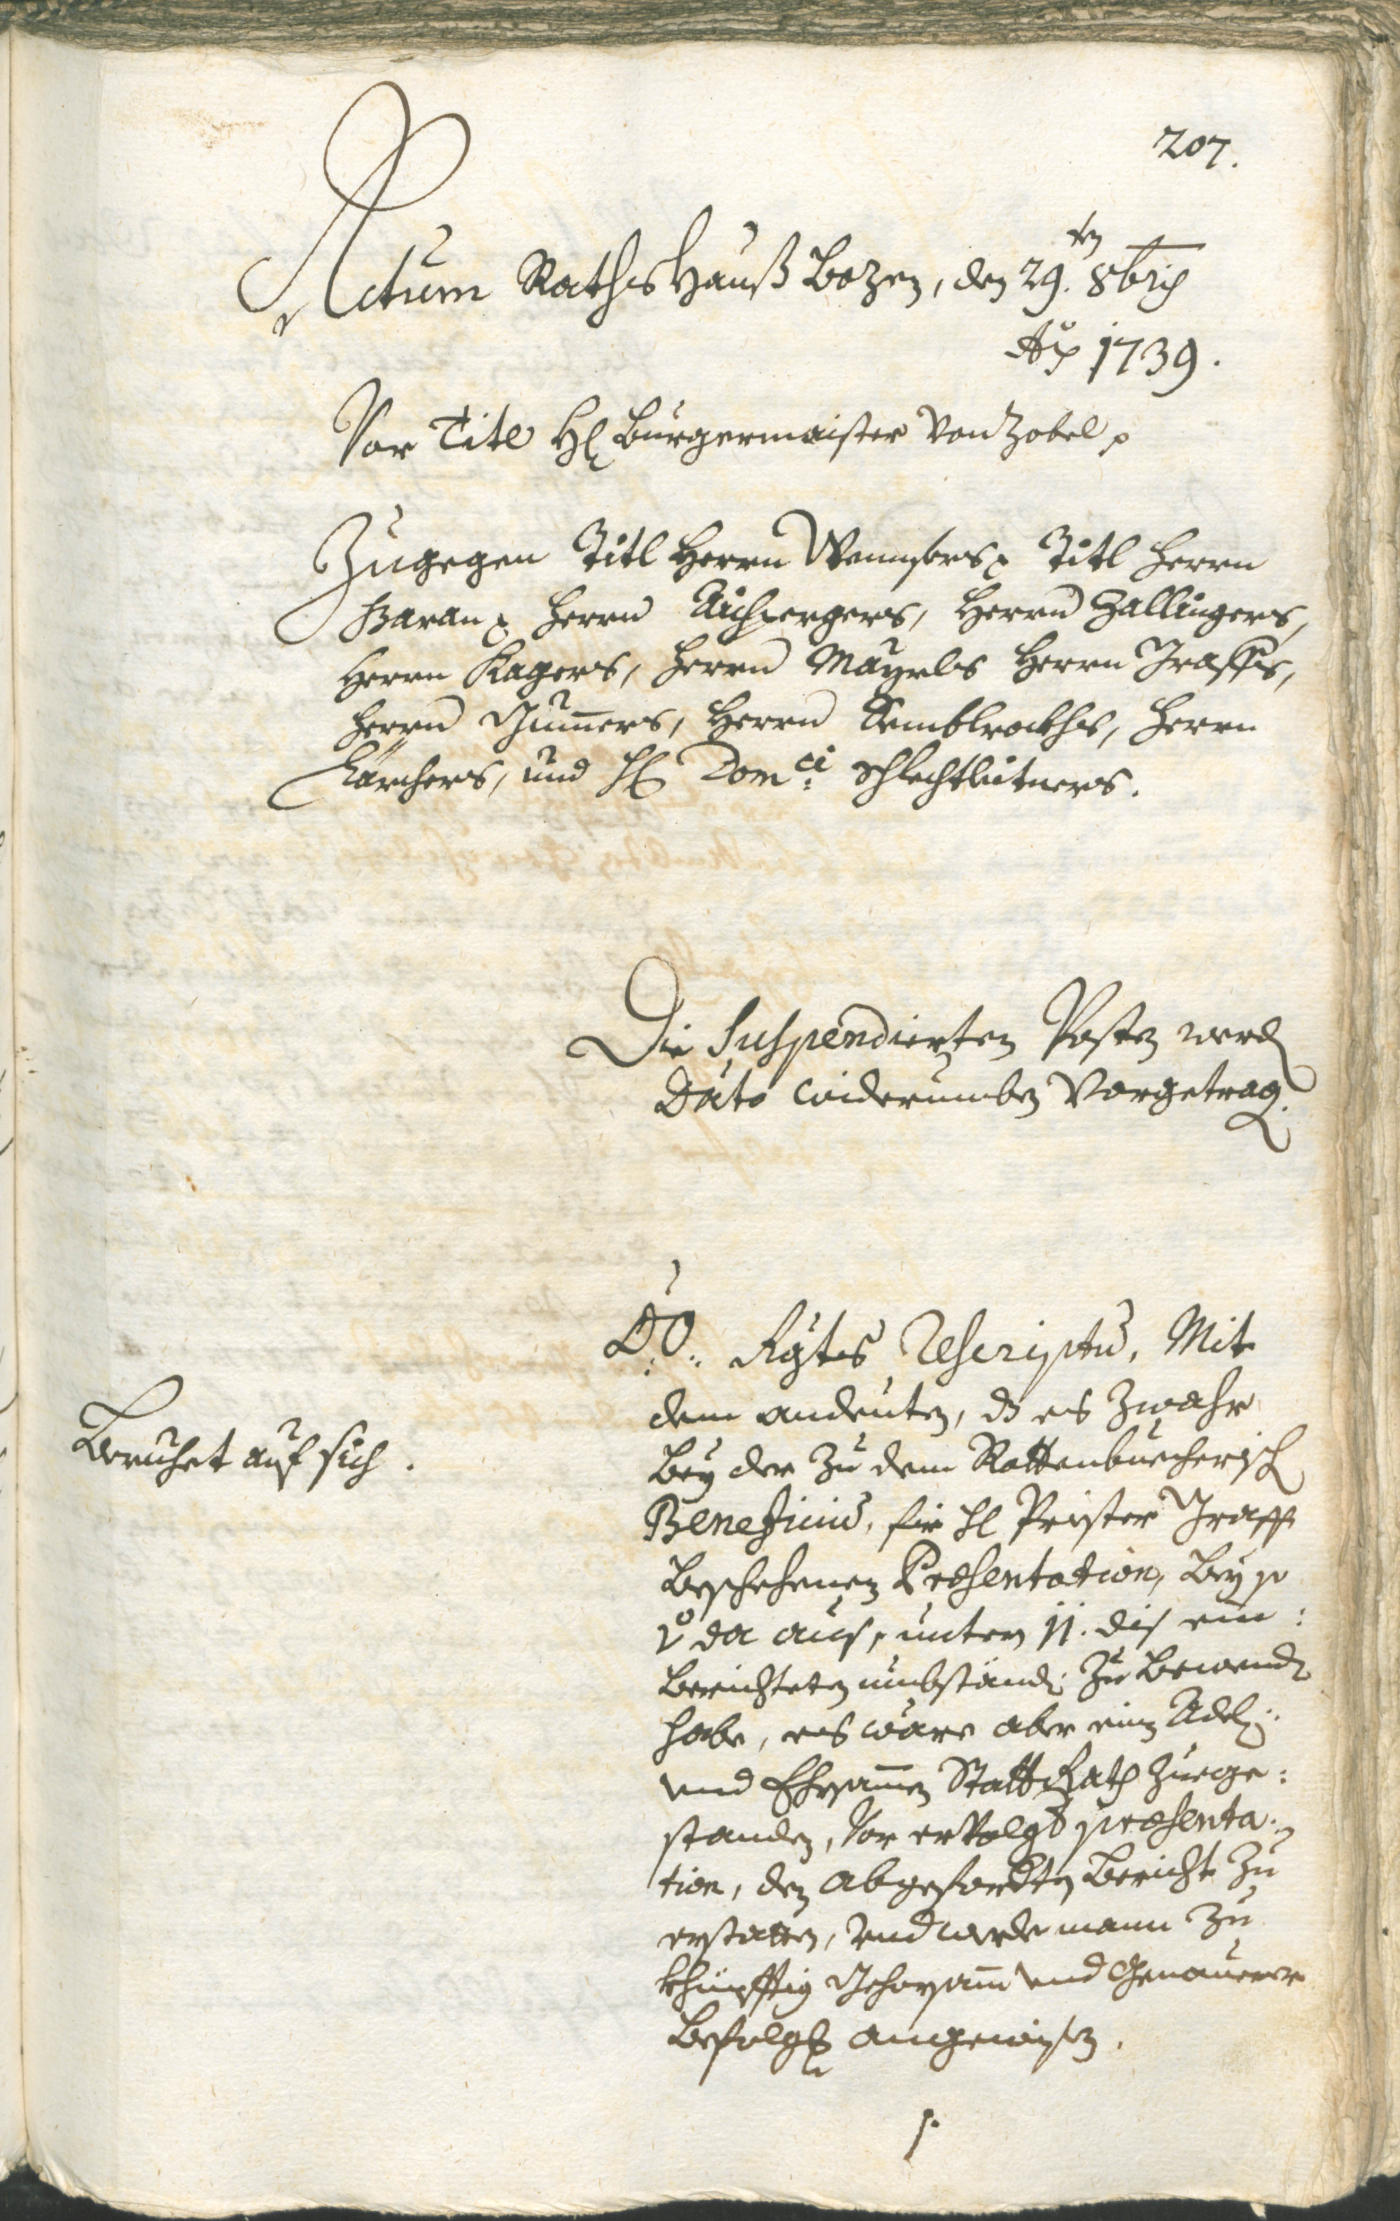 207.
Actum Rathshauß Bozen, den 29.ten 8bris
Aō 1739.
Vor Titl H: Burgermaister von Zobel p
Zugegen Titl Herrn Wensers p Titl Herrn
Baran p Herrn Aichpergers, Herrn Zallingers,
Herrn Kagers, Herrn Mayrls Herrn Graffs,
Herrn Gum̄ers, Herrn Semblrockhs, Herrn
Kärchers, und H: Dom:ci Schlechtleitners.
Die suspendierten Posten werd
Dato widerumben Vorgetrag.
Beruhet auf sich.
O:Ö: Rescriptū, Mit
dem andeuten, dß es zwahr
bey der zu dem Rottenbuecherisch
Beneficiū, für H: Prister Graff
beschehenen Præsentation, bey so
v̊ da aus, unterm 11. dis ein:
berichteten umbständ: zu bewend
habe, es wäre aber ein Adel:
und Ehrsamen Statt Rath zuege:
standen, Vor ervolgt præsenta:
tion, den abgeforderten bericht zu
erstatten, und werde mann zu
khünfftig gehorsam und genauerer
befolg angewisen.